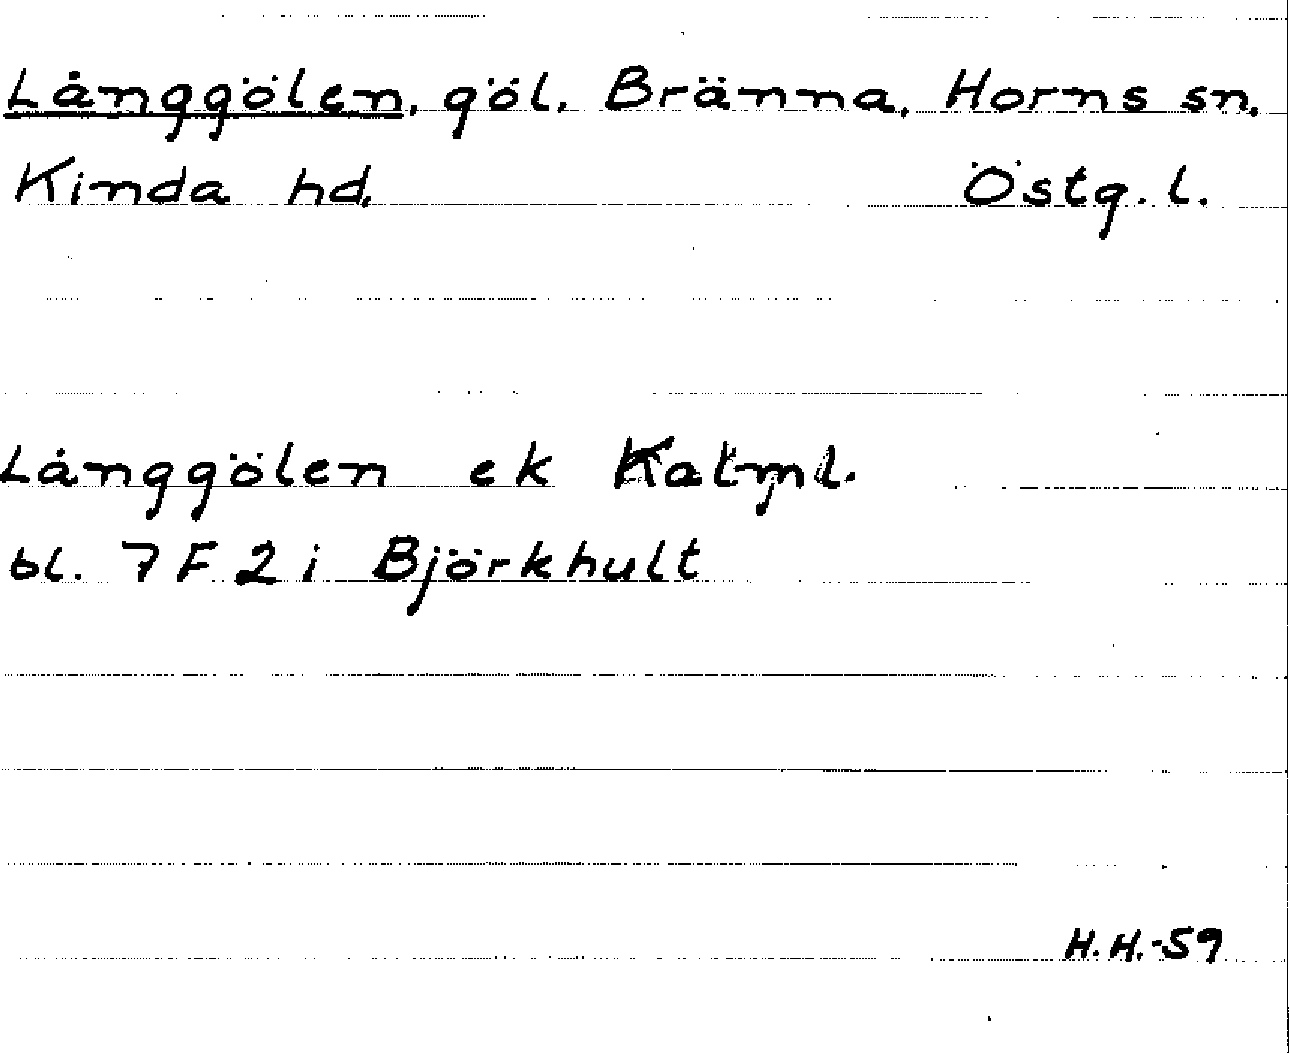 Långgölen, göl. Bränna, Horns sn.
Kinda hd. Östg. l.
Långgölen ek Katml.
bl. 7 F 2 i Björkhult
H.H.-59